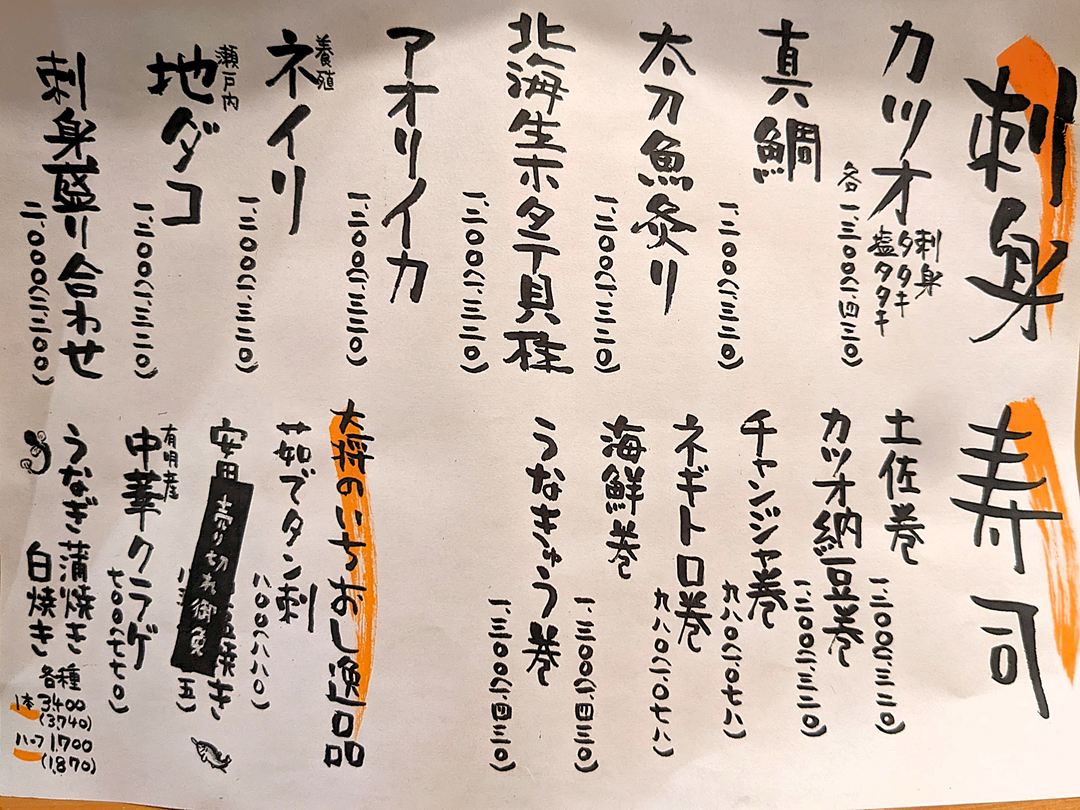 刺身
カツオ
刺身
タタキ
塩タタキ
各一、三〇〇(一、四三〇)
真鯛
一、二〇〇(一、三二〇)
太刀魚炙り
一、二〇〇(一、三二〇)
北海生ホタテ貝柱
一、二〇〇(一、三二〇)
アオリイカ
一、二〇〇(一、三二〇)
養殖
ネイリ
一、二〇〇(一、三二〇)
瀬戸内
地ダコ
一、二〇〇(一、三二〇)
刺身盛り合わせ
二、〇〇〇(二、二〇〇)
寿司
土佐巻
一、二〇〇(一、三二〇)
カツオ納豆巻
一、二〇〇(一、三二〇)
チャンジャ巻
九八〇(一、〇七八)
ネギトロ巻
九八〇(一、〇七八)
海鮮巻
一、三〇〇(一、四三〇)
うなきゅう巻
一、三〇〇(一、四三〇)
大将のいちおし逸品
茹でタン刺
八〇〇(八八〇)
安田
売り切れ御免
焼き
有明産
中華クラゲ
七〇〇(七七〇)
うなぎ蒲焼き 白焼き
各種
1本 3,400
(3,740)
ハーフ 1,700
(1,870)